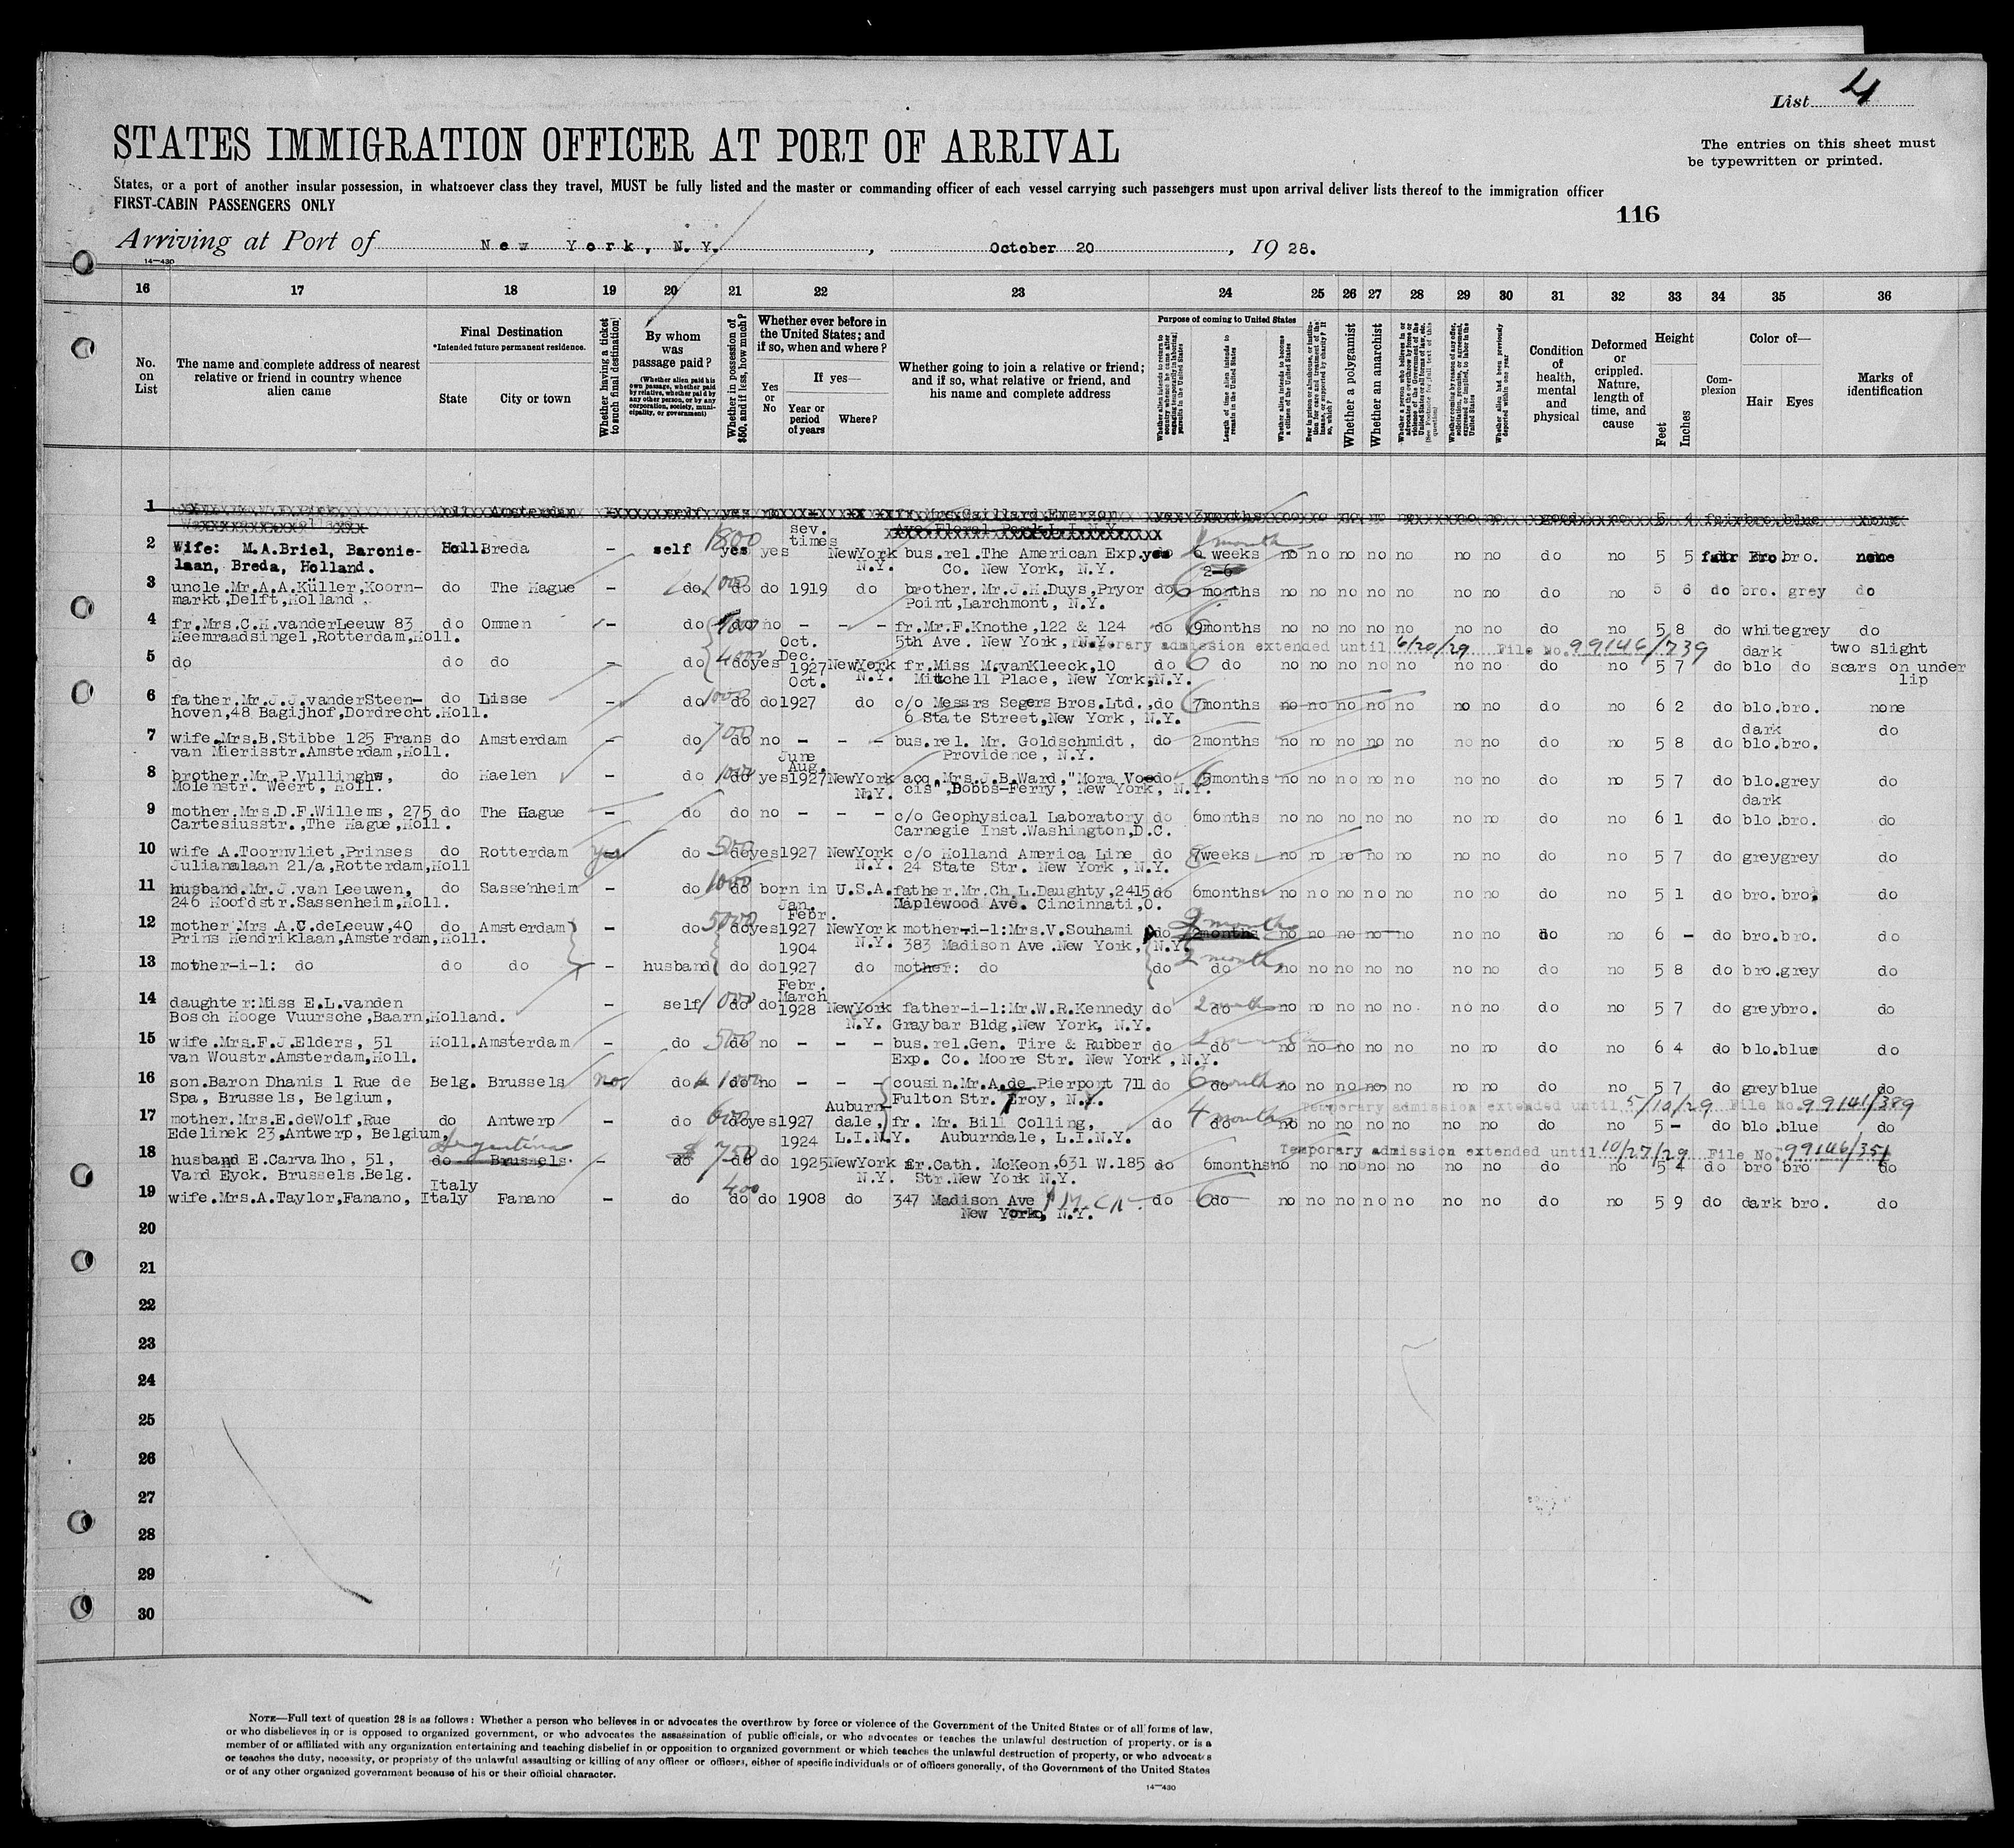 List 4
STATES IMMIGRATION OFFICER AT PORT OF ARRIVAL
The entries on this sheet must
be typewritten or printed.
States, or a port of another insular possession, in whatsoever class they travel, MUST be fully listed and the master or commanding officer of each vessel carrying such passengers must upon arrival deliver lists thereof to the immigration officer
FIRST-CABIN PASSENGERS ONLY
116
Arriving at Port of New York, N.Y. , October 20 , 19 28.
14—430
16 17 18 19 20 21 22 23 24 25 26 27 28 29 30 31 32 33 34 35 36
No. on List
The name and complete address of nearest relative or friend in country whence alien came
Final Destination
*Intended future permanent residence.
State City or town
Whether having a ticket to such final destination
By whom was passage paid?
(Whether alien paid his own passage, whether paid by relative, whether paid by any other person, or by any corporation, society, municipality, or government)
Whether in possession of $50, and if less, how much?
Whether ever before in the United States; and if so, when and where?
Yes or No
If yes—
Year or period of years
Where?
Whether going to join a relative or friend; and if so, what relative or friend, and his name and complete address
Purpose of coming to United States
Length of time alien intends to remain in the United States
Whether alien intends to become a citizen of the United States
Whether a polygamist
Whether an anarchist
Whether alien had been previously deported within one year
Condition of health, mental and physical
Deformed or crippled. Nature, length of time, and cause
Height
Feet Inches
Complexion
Color of—
Hair Eyes
Marks of identification
1 Amsterdam
sev.
times
2 Wife: M.A.Briel, Baronie- Holl. Breda - self 1800 yes yes New York bus.rel.The American Exp. yes 6 weeks no no no no no no no do no 5 5 fair bro. bro. none
laan, Breda, Holland. N.Y. Co. New York, N.Y.
3 uncle.Mr.A.A.Küller,Koorn- do The Hague - do 1000 do do 1919 do brother.Mr.J.H.Duys,Pryor do 6 months no no no no no no no do no 5 6 do bro. grey do
markt,Delft,Holland. Point,Larchmont, N.Y.
4 fr.Mrs.C.H.vanderLeeuw 83 do Ommen - do do no - - fr.Mr.F.Knothe,122 & 124 do 6 months no no no no no no no do no 5 8 do white grey do
Heemraadsingel,Rotterdam,Holl. Oct. 5th Ave. New York, N.Y. Temporary admission extended until 6/20/29 File No. 99146/739
Dec. dark two slight
5 do do do - do 4000 do yes 1927 New York fr.Miss M.vanKleeck,10 do 6 do no no no no no no no do no 5 7 do blo do scars on under
Oct. N.Y. Mitchell Place, New York,N.Y. lip
6 father.Mr.J.J.vanderSteen- do Lisse - do 1000 do do 1927 do c/o Messrs Segers Bros.Ltd., do months no no no no no no no do no 6 2 do blo.bro. none
hoven,48 Bagijhof,Dordrecht.Holl. 6 State Street,New York, N.Y.
dark
7 wife.Mrs.B.Stibbe 125 Frans do Amsterdam - do 700 do no - - - bus.rel. Mr. Goldschmidt, do 2months no no no no no no no do no 5 8 do blo.bro. do
van Mierisstr.Amsterdam,Holl. June Providence, N.Y.
Aug.
8 brother.Mr.P.Vullinghs, do Haelen - do 1000 do yes 1927 New York acq.Mrs.J.B.Ward,"Mora Vo do 6 months no no no no no no no do no 5 7 do blo.grey do
Molenstr. Weert, Holl. N.Y. cis",Dobbs-Ferry, New York, N.Y.
dark
9 mother.Mrs.D.F.Willems, 275 do The Hague - do do no - - - c/o Geophysical Laboratory do 6months no no no no no no no do no 6 1 do blo.bro. do
Cartesiusstr.,The Hague,Holl. Carnegie Inst.Washington,D.C.
10 wife A.Toornvliet,Prinses do Rotterdam yes do 500 do yes 1927 New York c/o Holland America Line do weeks no no no no no no no do no 5 7 do grey grey do
Julianalaan 21/a,Rotterdam,Holl N.Y. 24 State Str. New York, N.Y.
11 husband.Mr.J.van Leeuwen, do Sassenheim - do 1000 do born in U.S.A. father.Mr.Ch.L.Daughty,2415 do 6months no no no no no no no do no 5 1 do bro. bro. do
246 Hoofdstr.Sassenheim,Holl. Jan. Maplewood Ave. Cincinnati,O.
Febr.
12 mother Mrs.A.C.deLeeuw,40 do Amsterdam - do 5000 do yes 1927 New York mother-i-l:Mrs.V.Souhami do 2 months no no no no no no no do no 6 - do bro.bro. do
Prins Hendriklaan,Amsterdam,Holl. 1904 N.Y. 383 Madison Ave.New York, N.Y.
13 mother-i-l: do do do - husband do do 1927 do mother: do do do 2 months no no no no no no no do no 5 8 do bro.grey do
Febr.
March
14 daughter:Miss E.L.vanden - self 1000 do do 1928 New York father-i-l:Mr.W.R.Kennedy do do 2 months no no no no no no no do no 5 7 do grey bro. do
Bosch Hooge Vuursche,Baarn,Holland. N.Y. Graybar Bldg,New York, N.Y.
15 wife.Mrs.F.J.Elders, 51 Holl. Amsterdam - do 500 do no - - - bus.rel.Gen. Tire & Rubber do do no no no no no no no do no 6 4 do blo.blue do
van Woustr.Amsterdam,Holl. Exp. Co. Moore Str. New York, N.Y.
16 son.Baron Dhanis 1 Rue de Belg. Brussels no do 1000 do no - - - cousin.Mr.A.de Pierpont 711 do 6 months do no no no no no no no do no 5 7 do grey blue do
Spa, Brussels, Belgium, Fulton Str. Troy, N.Y.
Auburn- Temporary admission extended until 5/10/29 File No. 99141/389
17 mother.Mrs.E.deWolf,Rue do Antwerp - do 600 do yes 1927 dale, fr. Mr. Bill Colling, do do 4 months no no no no no no no do no 5 - do blo.blue do
Edelinck 23,Antwerp, Belgium, 1924 L.I.N.Y. Auburndale, L.I.N.Y.
Argentina Temporary admission extended until 10/27/29 File No. 99146/351
18 husband E.Carvalho, 51, do Brussels. - do 750 do do 1925 New York fr.Cath. McKeon.631 W.185 do 6months no no no no no no no do no 5 4 do bro bro do
Vand Eyck. Brussels.Belg. N.Y. Str.New York N.Y.
Italy 400
19 wife.Mrs.A.Taylor,Fanano, Italy Fanano - do do do 1908 do 347 Madison Ave Y.M.C.A. do 6 do no no no no no no no do no 5 9 do dark bro. do
New York, N.Y.
20
21
22
23
24
25
26
27
28
29
30
NOTE—Full text of question 28 is as follows: Whether a person who believes in or advocates the overthrow by force or violence of the Government of the United States or of all forms of law,
or who disbelieves in or is opposed to organized government, or who advocates the assassination of public officials, or who advocates or teaches the unlawful destruction of property, or is a
member of or affiliated with any organization entertaining and teaching disbelief in or opposition to organized government or which teaches the unlawful destruction of property, or who advocates
or teaches the duty, necessity, or propriety of the unlawful assaulting or killing of any officer or officers, either of specific individuals or of officers generally, of the Government of the United States
or of any other organized government because of his or their official character.
14—430